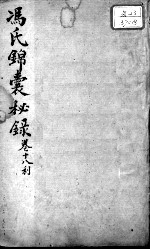 馮氏錦囊秘録
卷十八利